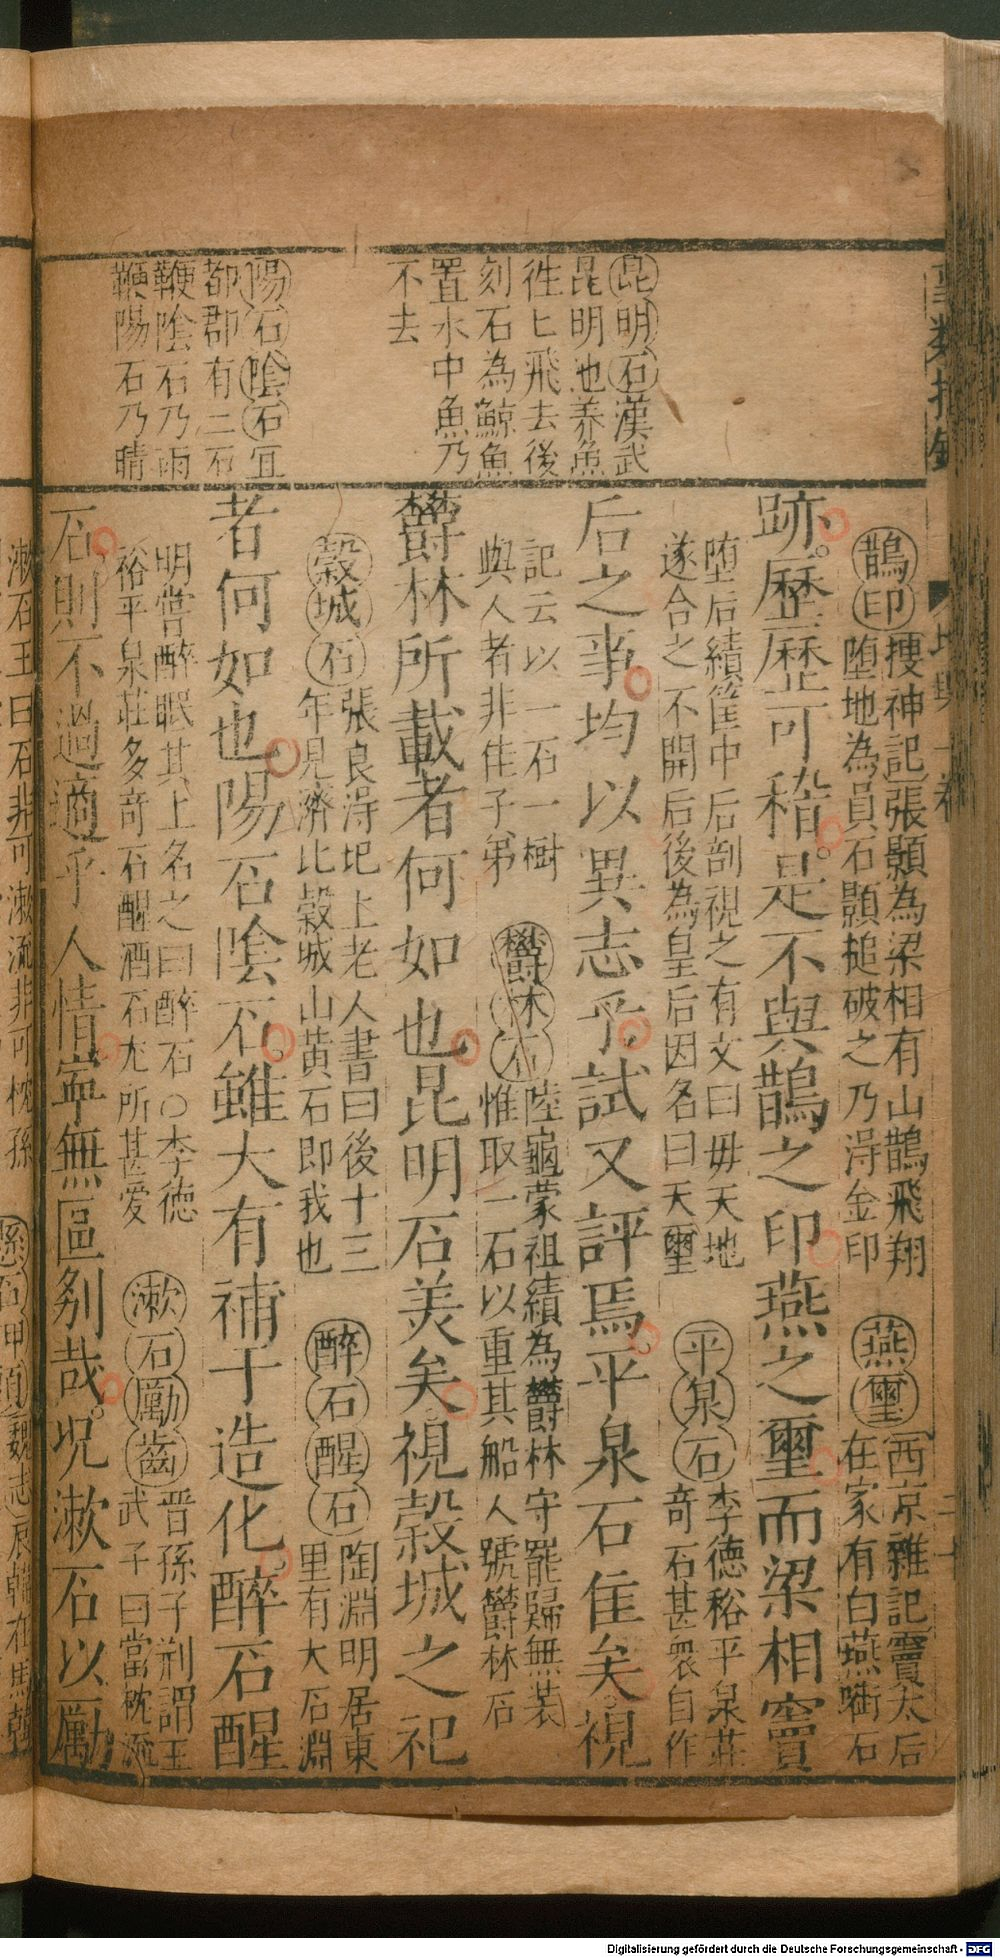 昆明石漢武
昆明池养魚
徃匕飛去後
刻石為鯨魚
置水中魚乃
不去
陽石陰石宜
都郡有二石
鞭陰石乃雨
鞭陽石乃晴
鵲印 捜神記張顥為梁相有山鵲飛翔
堕地為員石顥搥破之乃淂金印
燕璽 西京雜記竇太后
在家有白燕啣石
跡歷歷可稽是不與鵲之印燕之璽而梁相竇
堕后績筐中后剖視之有文曰毋天地
遂合之不開后後為皇后因名曰天璽
平泉石 李德裕平泉莊
竒石甚衆自作
后之事均以異志乎試又評焉平泉石隹矣視
記云以一石一樹
與人者非佳子弟
欝林石 陸龜蒙祖績為欝林守罷歸無装
惟取一石以重其船人號欝林石
欝林所載者何如也昆明石美矣視穀城之祀
穀城石 張良淂圯上老人書曰後十三
年見濟北穀城山黄石即我也
醉石醒石 陶淵明居東
里有大石淵
者何如也陽石陰石雖大有補于造化醉石醒
明嘗醉眠其上名之曰醉石○李徳
裕平泉莊多竒石醒酒石尤所甚爱
漱石勵齒 晋孫子荆謂王
武子曰當枕流
石則不過適乎人情寜無區别哉况漱石以勵
漱石王曰石非可漱流非可枕孫
Digitalisierung gefördert durch die Deutsche Forschungsgemeinschaft - DFG